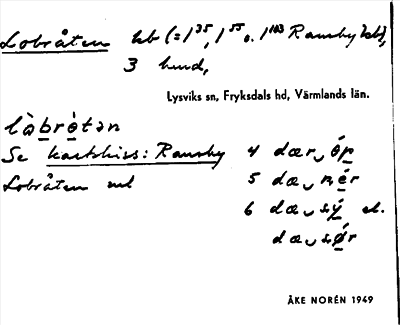 Lobråten hb (=1³⁵, 1⁵⁵ o. 1¹⁰³ Ransby kb),
3 hund,
Lysviks sn, Fryksdals hd, Värmlands län.
làbròtən
Se kartskiss: Ransby 4 dær ǿp
Lobråten 5 dæ nér
6 dæ sý el.
dæ sǿr
ÅKE NORÉN 1949